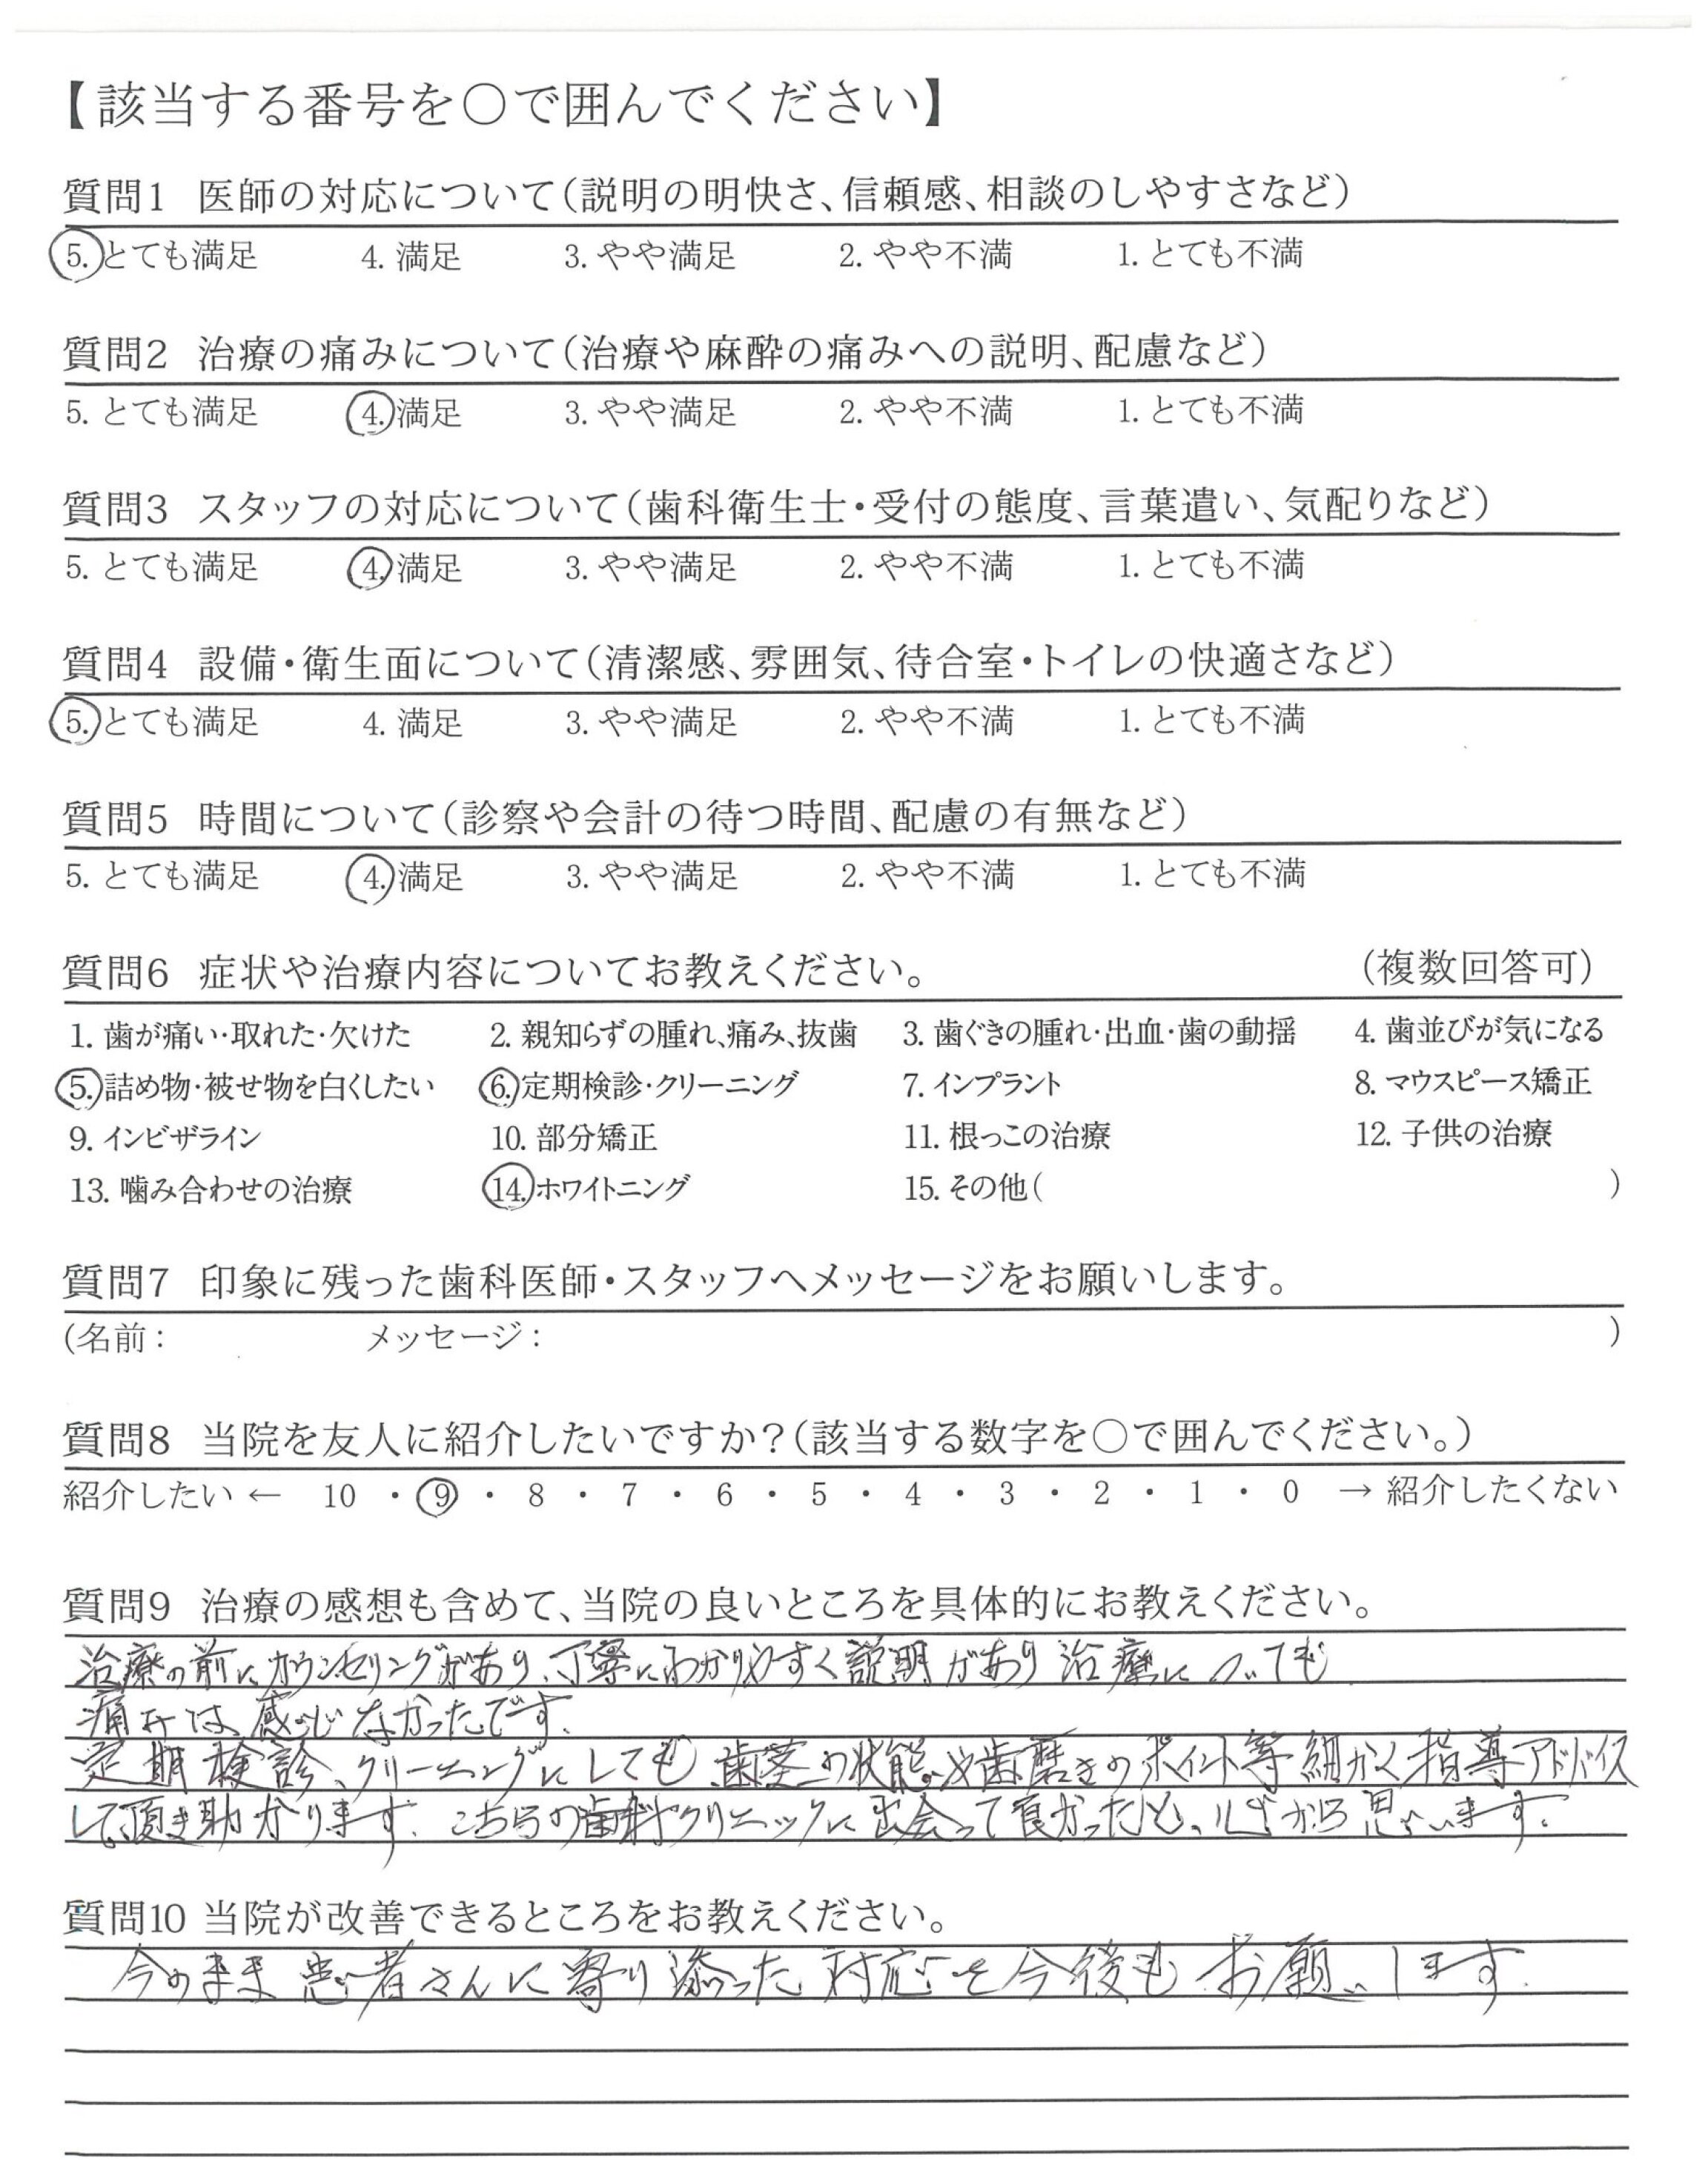 【該当する番号を〇で囲んでください】
質問1 医師の対応について(説明の明快さ、信頼感、相談のしやすさなど)
5. とても満足 4. 満足 3. やや満足 2. やや不満 1. とても不満
質問2 治療の痛みについて(治療や麻酔の痛みへの説明、配慮など)
5. とても満足 4. 満足 3. やや満足 2. やや不満 1. とても不満
質問3 スタッフの対応について(歯科衛生士・受付の態度、言葉遣い、気配りなど)
5. とても満足 4. 満足 3. やや満足 2. やや不満 1. とても不満
質問4 設備・衛生面について(清潔感、雰囲気、待合室・トイレの快適さなど)
5. とても満足 4. 満足 3. やや満足 2. やや不満 1. とても不満
質問5 時間について(診察や会計の待つ時間、配慮の有無など)
5. とても満足 4. 満足 3. やや満足 2. やや不満 1. とても不満
質問6 症状や治療内容についてお教えください。 (複数回答可)
1. 歯が痛い・取れた・欠けた 2. 親知らずの腫れ、痛み、抜歯 3. 歯ぐきの腫れ・出血・歯の動揺 4. 歯並びが気になる
5. 詰め物・被せ物を白くしたい 6. 定期検診・クリーニング 7. インプラント 8. マウスピース矯正
9. インビザライン 10. 部分矯正 11. 根っこの治療 12. 子供の治療
13. 噛み合わせの治療 14. ホワイトニング 15. その他( )
質問7 印象に残った歯科医師・スタッフへメッセージをお願いします。
(名前: メッセージ: )
質問8 当院を友人に紹介したいですか?(該当する数字を〇で囲んでください。)
紹介したい ← 10 ・ 9 ・ 8 ・ 7 ・ 6 ・ 5 ・ 4 ・ 3 ・ 2 ・ 1 ・ 0 → 紹介したくない
質問9 治療の感想も含めて、当院の良いところを具体的にお教えください。
治療の前にカウンセリングがあり、丁寧にわかりやすく説明があり治療についても
痛みは感じなかったです。
定期検診、クリーニングにしても、歯茎の状態や歯磨きのポイント等細かく指導アドバイス
して頂き助かります。こちらの歯科クリニックに出会って良かったと、心から思います。
質問10 当院が改善できるところをお教えください。
今のまま患者さんに寄り添った対応を今後もお願いします。